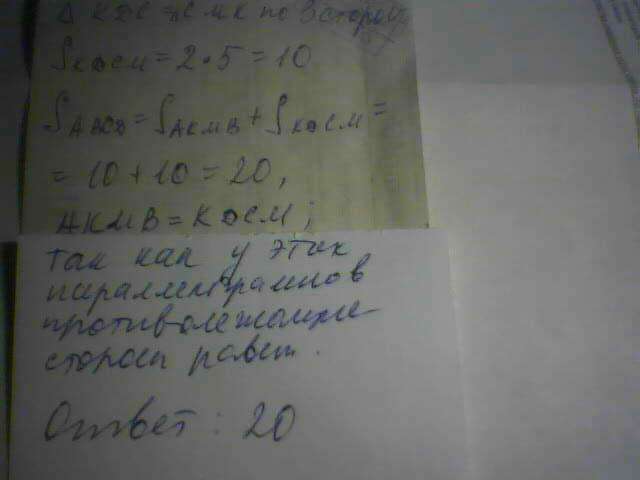 Δ KDC = CMK по 3 сторон
SKDCM = 2 • 5 = 10
SABCD = SAKMB + SKDCM =
= 10 + 10 = 20,
AKMB = KDCM;
так как у этих
параллеграммов
противолежащие
стороны равны.
Ответ: 20